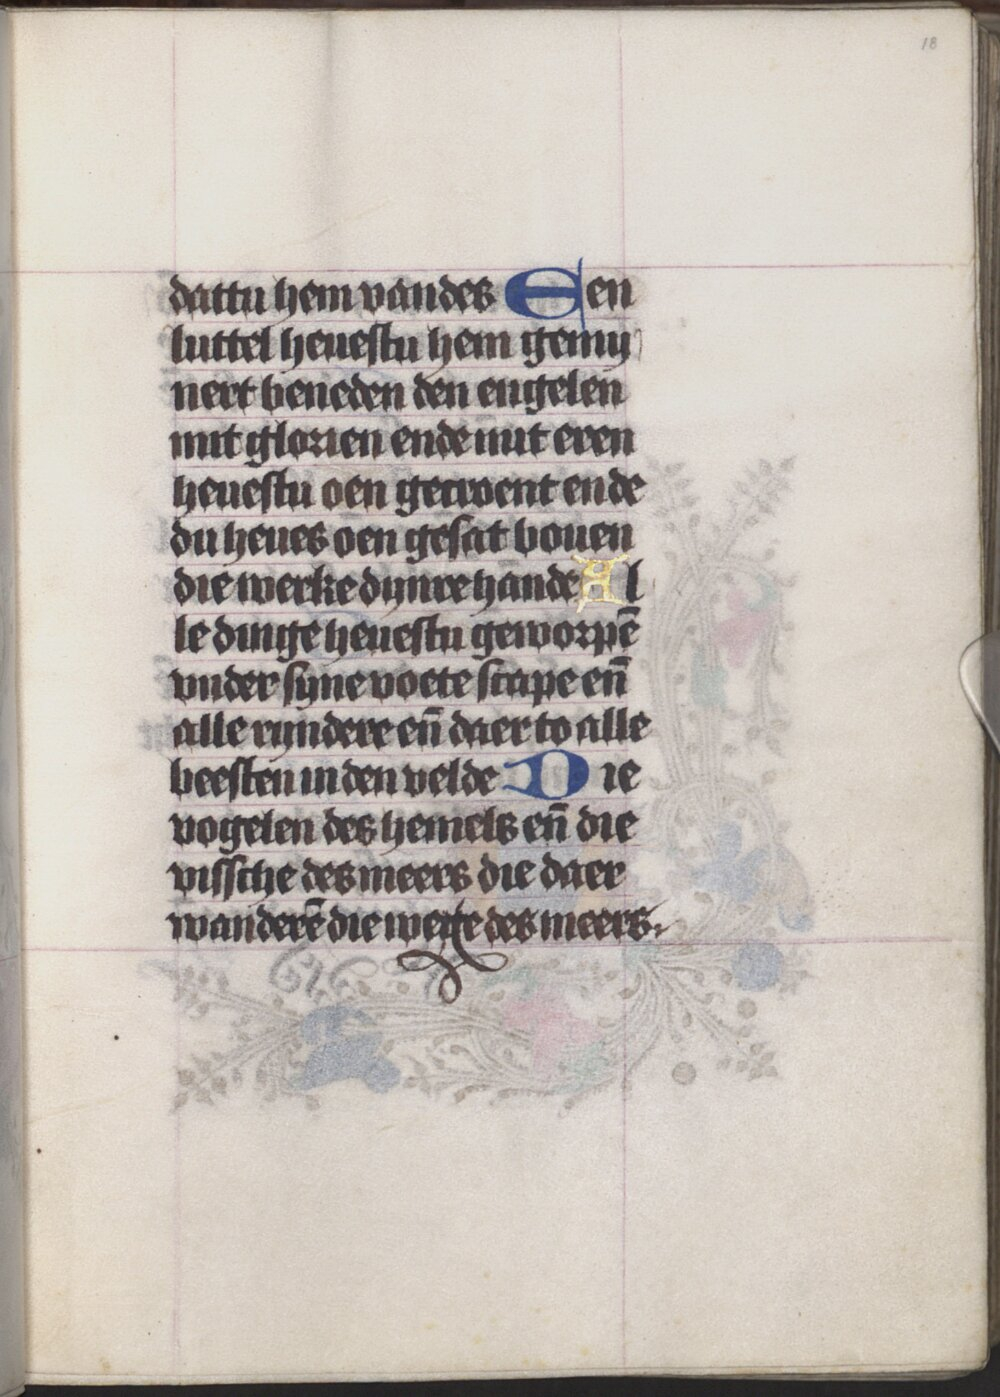 18
dattu hem vandes Een
luttel heuestu hem gemy
nert beneden den engelen
mit glorien ende mit eren
heuestu oen gecroent ende
du heues oen gesat bouen
die werke dynre hande Al
le dinge heuestu geworpē
vnder syne voete scape en̄
alle ryndere en̄ daer to alle
beesten in den velde Die
vogelen des hemels en̄ die
vissche des meers die daer
wanderē die wege des meers.